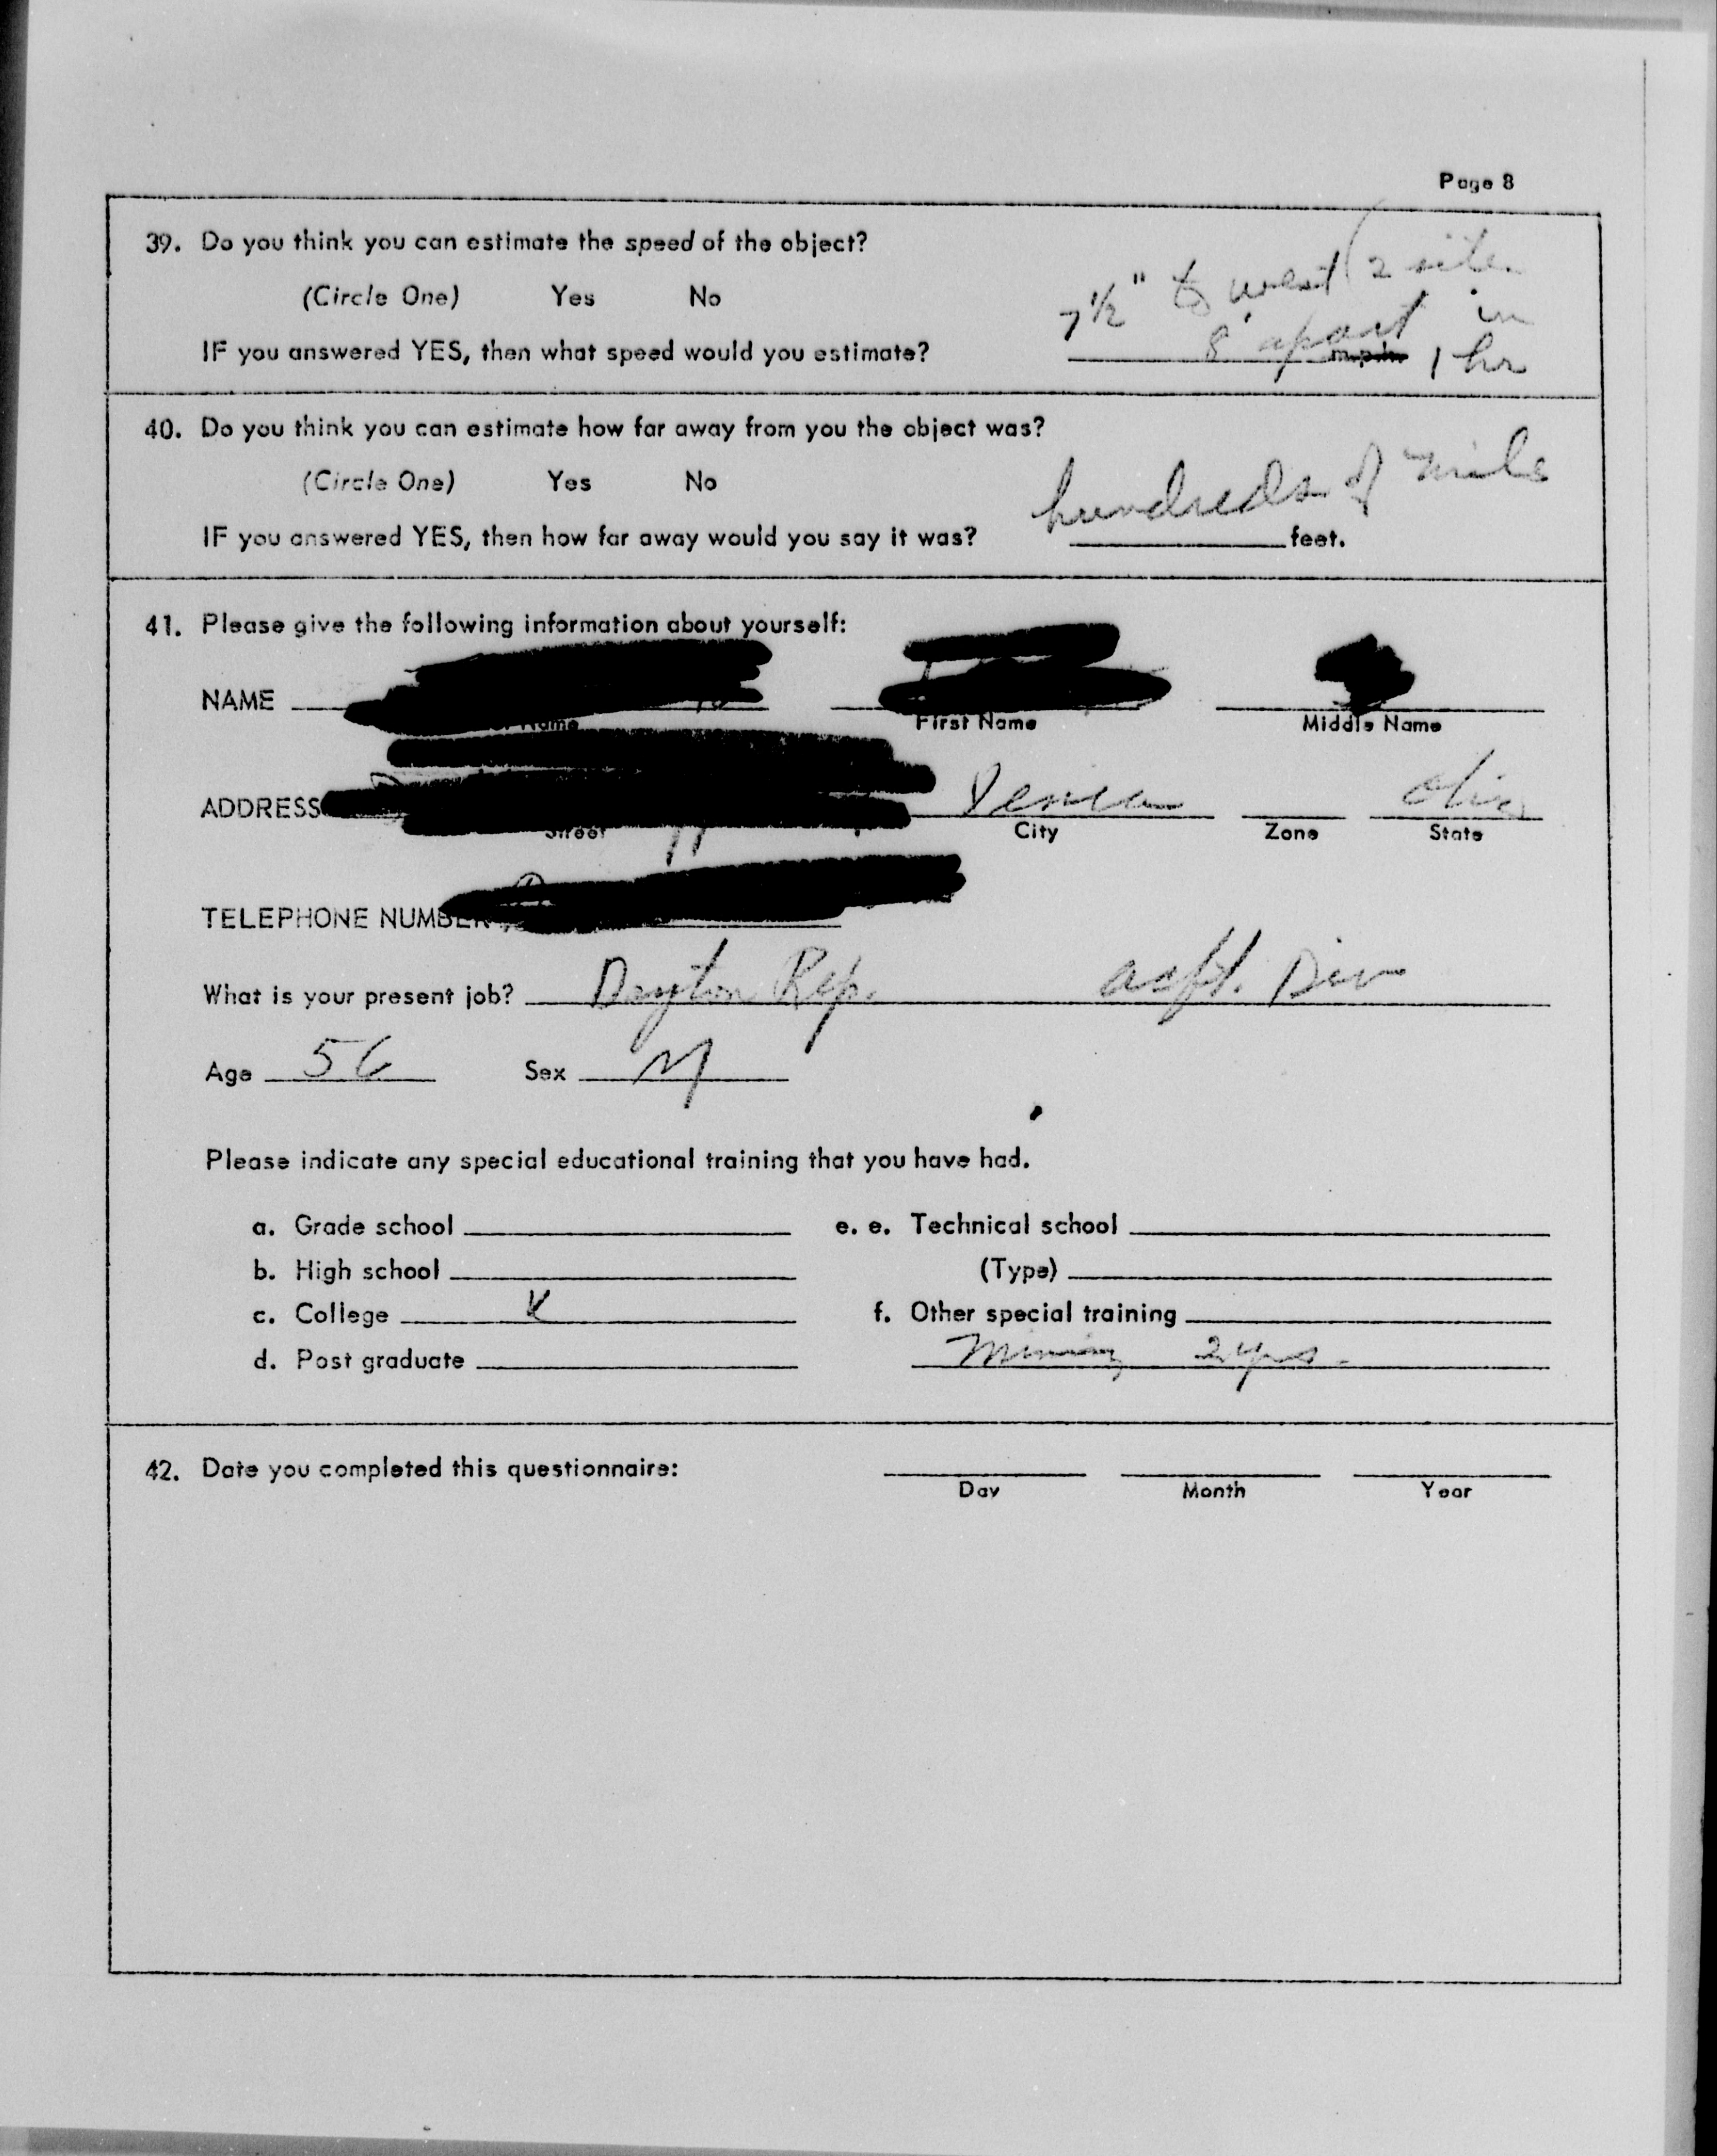 Page 8
39. Do you think you can estimate the speed of the object?
7 1/2" to west (2 sites
(Circle One) Yes No
8' apart in
IF you answered YES, then what speed would you estimate? m.p.h. 1 hr
40. Do you think you can estimate how far away from you the object was?
(Circle One) Yes No
hundreds of miles
IF you answered YES, then how far away would you say it was? feet.
41. Please give the following information about yourself:
NAME
Name First Name Middle Name
ADDRESS Xenia Ohio
Street City Zone State
TELEPHONE NUMBER
What is your present job? Dayton Rep. acft. Div
Age 56 Sex M
Please indicate any special educational training that you have had.
a. Grade school e. e. Technical school
b. High school (Type)
c. College f. Other special training
d. Post graduate Mining 2 yrs.
42. Date you completed this questionnaire:
Day Month Year